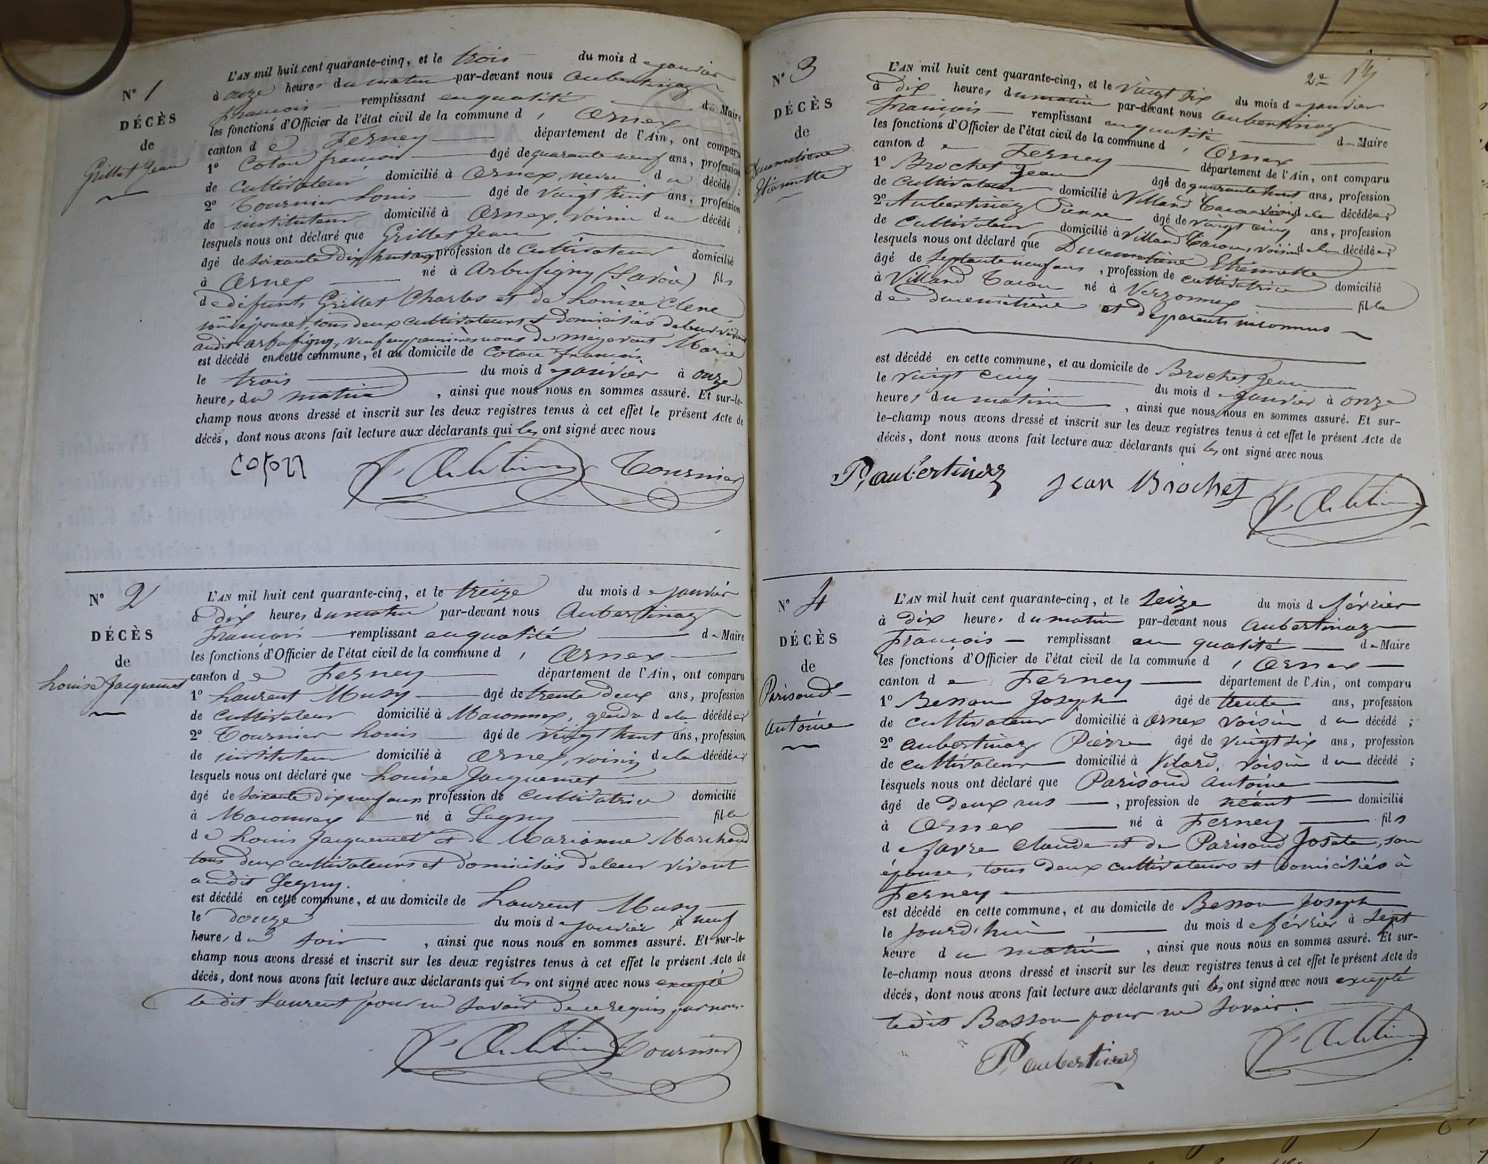 N° 1
DÉCÈS
de
Grillet Jean
L'AN mil huit cent quarante-cinq, et le trois du mois de janvier
à onze heures du matin par-devant nous Aubertinaz
françois remplissant en qualité de Maire
les fonctions d'Officier de l'état civil de la commune d'Ornex
canton de Ferney département de l'Ain, ont comparu
1° Cotau françois âgé de quarante neuf ans, profession
de cultivateur domicilié à Ornex, du décédé ;
2° Tournier Louis âgé de vingt huit ans, profession
de instituteur domicilié à Ornex, voisin du décédé ;
lesquels nous ont déclaré que Grillet Jean
âgé de soixante dix huit ans profession de cultivateur domicilié
à Ornex né à Arbusigny (Savoie) fils
de défunts Grillet Charles et de Louise Clerc
son épouse, tous deux cultivateurs et domiciliés de leur vivant
audit Arbusigny, Marie
est décédé en cette commune, et au domicile de Cotau françois
le trois du mois de janvier à onze
heures du matin, ainsi que nous nous en sommes assuré. Et sur-le-
champ nous avons dressé et inscrit sur les deux registres tenus à cet effet le présent Acte de
décès, dont nous avons fait lecture aux déclarants qui les ont signé avec nous
Tournier
N° 2
DÉCÈS
de
Louise Jacquemet
L'AN mil huit cent quarante-cinq, et le treize du mois de janvier
à dix heures du matin par-devant nous Aubertinaz
françois remplissant en qualité de Maire
les fonctions d'Officier de l'état civil de la commune d'Ornex
canton de Ferney département de l'Ain, ont comparu
1° Laurent Musy âgé de trente deux ans, profession
de cultivateur domicilié à Maconnex, gendre de la décédée
2° Tournier Louis âgé de vingt huit ans, profession
de instituteur domicilié à Ornex, voisin de la décédée
lesquels nous ont déclaré que Louise Jacquemet
âgé de soixante dix neuf ans profession de cultivatrice domicilié
à Maconnex né à Segny fille
de Louis Jacquemet et de Marianne Marchand
tous deux cultivateurs et domiciliés de leur vivant
audit Segny.
est décédé en cette commune, et au domicile de Laurent Musy
le douze du mois de janvier à neuf
heures du soir, ainsi que nous nous en sommes assuré. Et sur-le-
champ nous avons dressé et inscrit sur les deux registres tenus à cet effet le présent Acte de
décès, dont nous avons fait lecture aux déclarants qui les ont signé avec nous excepté
ledit Laurent pour ne savoir de ce requis par nous.
Tournier
2e
N° 3
DÉCÈS
de
Ducimetière
Etiennette
L'AN mil huit cent quarante-cinq, et le vingt six du mois de janvier
à dix heures du matin par-devant nous Aubertinaz
françois remplissant en qualité de Maire
les fonctions d'Officier de l'état civil de la commune d'Ornex
canton de Ferney département de l'Ain, ont comparu
1° Brochet Jean âgé de quarante huit ans, profession
de cultivateur domicilié à Villard Tacon voisin de la décédée
2° Aubertinaz Pierre âgé de vingt cinq ans, profession
de cultivateur domicilié à Villard Tacon, voisin de la décédée
lesquels nous ont déclaré que Ducimetière Etiennette
âgé de septante neuf ans, profession de cultivatrice domicilié
à Villard Tacon né à Verzonnex fille
de ducimetière et de parents inconnus
est décédé en cette commune, et au domicile de Brochet Jean
le vingt cinq du mois de janvier à onze
heures du matin, ainsi que nous nous en sommes assuré. Et sur-
le-champ nous avons dressé et inscrit sur les deux registres tenus à cet effet le présent Acte de
décès, dont nous avons fait lecture aux déclarants qui les ont signé avec nous
P. aubertinaz Jean Brochet
N° 4
DÉCÈS
de
Parisoud
Antoine
L'AN mil huit cent quarante-cinq, et le seize du mois d février
à dix heures du matin par-devant nous Aubertinaz
françois remplissant en qualité de Maire
les fonctions d'Officier de l'état civil de la commune d'Ornex
canton de Ferney département de l'Ain, ont comparu
1° Besson Joseph âgé de trente ans, profession
de cultivateur domicilié à Ornex voisin du décédé ;
2° aubertinaz Pierre âgé de vingt six ans, profession
de cultivateur domicilié à Vilard, voisin du décédé ;
lesquels nous ont déclaré que Parisoud Antoine
âgé de deux ans, profession de néant domicilié
à Ornex né à Ferney fils
de favre Claude et de Parisoud Josete, son
épouse, tous deux cultivateurs et domiciliés à
Ferney
est décédé en cette commune, et au domicile de Besson Joseph
le jourd'hui du mois de février à sept
heure du matin, ainsi que nous nous en sommes assuré. Et sur-
le-champ nous avons dressé et inscrit sur les deux registres tenus à cet effet le présent Acte de
décès, dont nous avons fait lecture aux déclarants qui les ont signé avec nous excepté
ledit Besson pour ne savoir.
P. aubertinaz